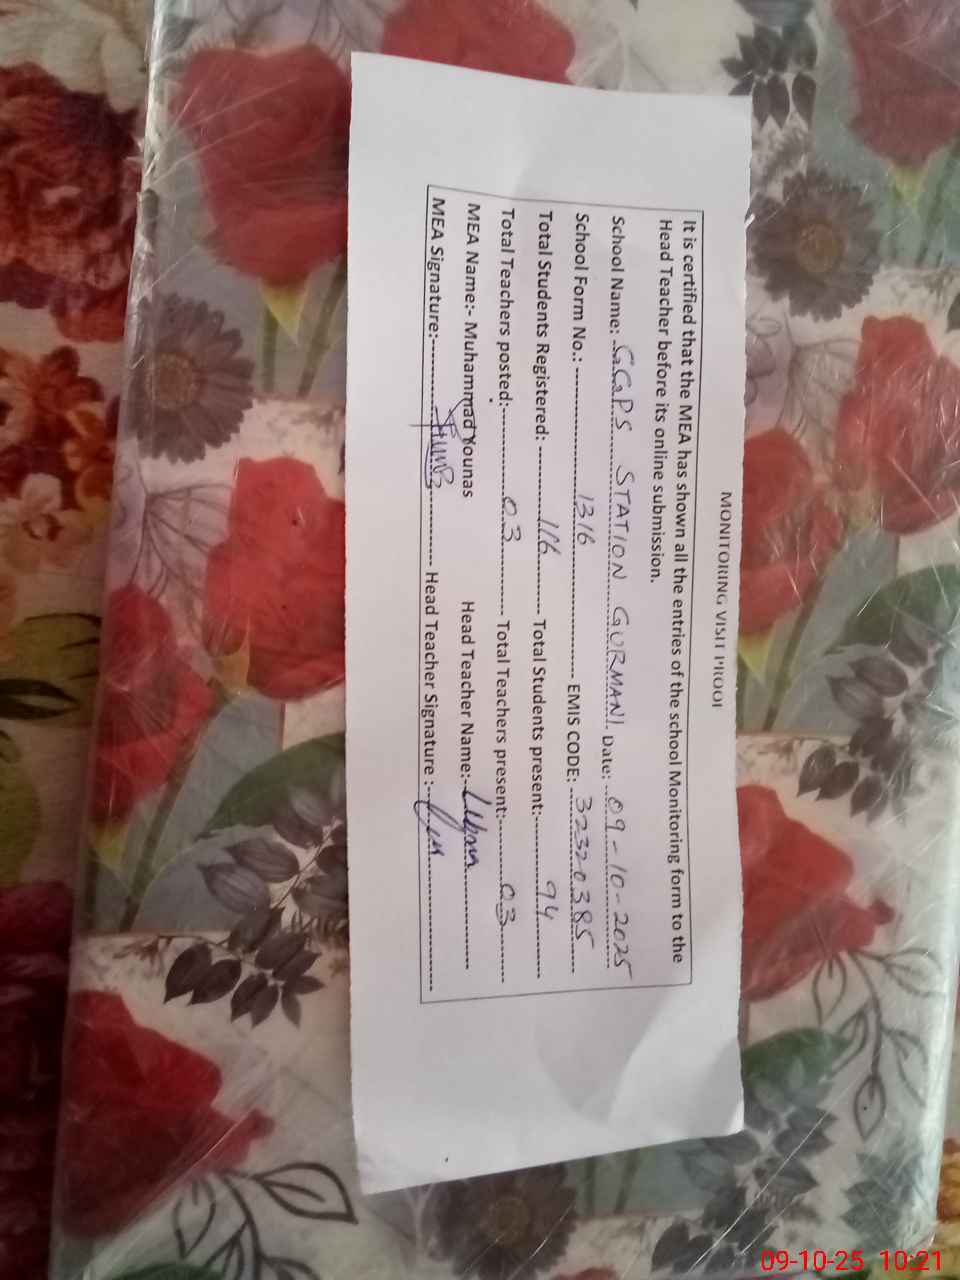 MONITORING VISIT PROOF
It is certified that the MEA has shown all the entries of the school Monitoring form to the
Head Teacher before its online submission.
School Name: GGPS STATION GURMANI Date: 09-10-2025
School Form No.: 1316 EMIS CODE: 32320385
Total Students Registered: 116 Total Students present: 94
Total Teachers posted: 03 Total Teachers present: 03
MEA Name:- Muhammad Younas Head Teacher Name:-
MEA Signature:- Head Teacher Signature :-
09-10-25 10:21